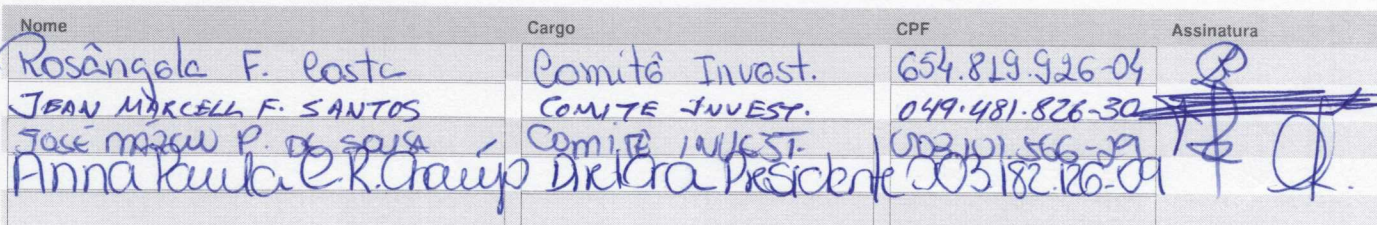 Nome Cargo CPF Assinatura
Rosângela F. Costa Comitê Invest. 654.819.926-04
JEAN MARCELL F. SANTOS COMITE INVEST. 049.481.826-30
JOSÉ P. DE SOUSA COMITÊ INVEST.
Anna Paula C R. Araújo Diretora Presidente 003182.126-09